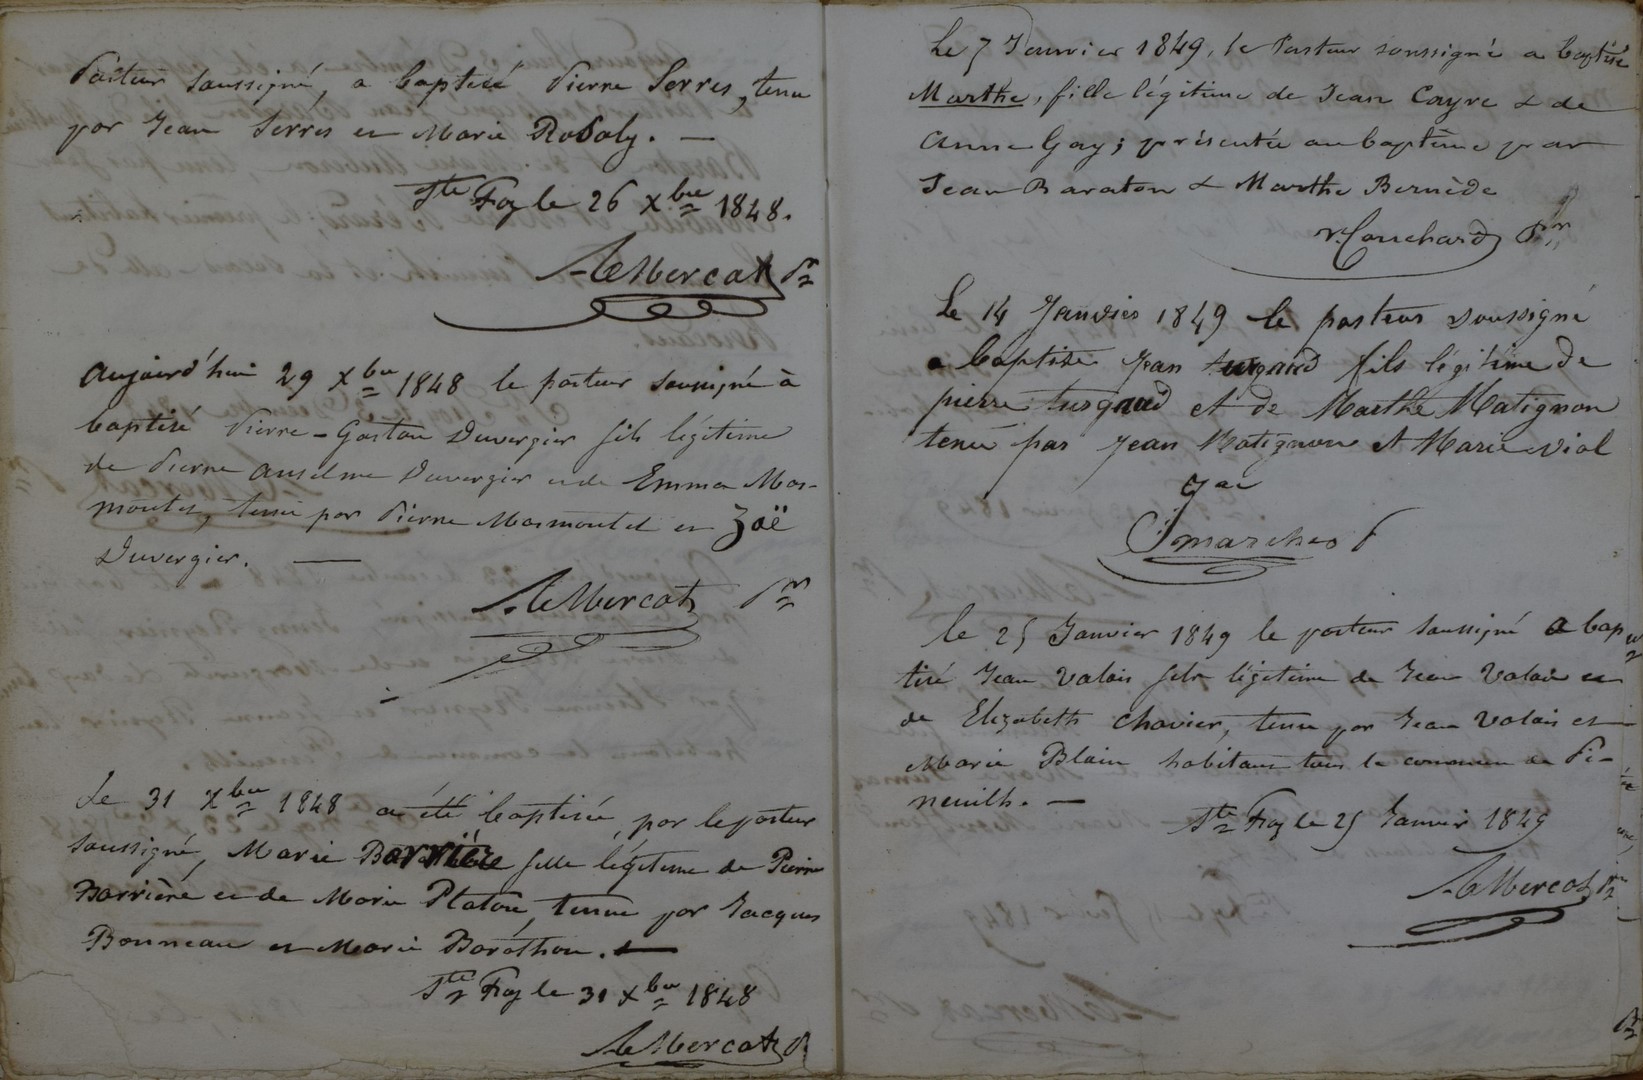 Pasteur soussigné, a baptisé Pierre Serres, tenu
par Jean Serres et Marie Rosoly. —
Ste Foy le 26 Xbre 1848.
A Mercat Pr
Aujourd'hui 29 Xbre 1848 le pasteur soussigné à
baptisé Pierre-Gaston Duvergier fils légitime
de Pierre Anselme Duvergier et de Emma Mar-
moutet, tenu par Pierre Marmoutel et Zoë
Duvergier. —
A Mercat Pr
Le 31 Xbre 1848 a été baptisée, par le pasteur
soussigné, Marie Barrière fille légitime de Pierre
Barrière et de Marie Platon, tenue par Jacques
Bonneau et Marie Barathon. —
Ste Foy le 31 Xbre 1848
A Mercat P
Le 7 Janvier 1849, le Pasteur soussigné a baptisé
Marthe, fille légitime de Jean Cayre & de
Anne Gay; présentée au baptême par
Jean Baraton & Marthe Bernède
Couchard Pr
Le 14 Janvier 1849 le pasteur soussigné
a baptisé Jean turgaud fils légitime de
pierre turgaud et de Marthe Matignon
tenu par Jean Matignon et Marie Vial
marches P
le 25 Janvier 1849 le pasteur soussigné a bap
tisé Jean Valais fils légitime de Jean Valais et
de Elizabeth Chavier, tenu par Jean Valais et
Marie Blain habitans tous la commune de Pi-
neuilh. —
Ste Foy le 25 Janvier 1849
A Mercat Pr